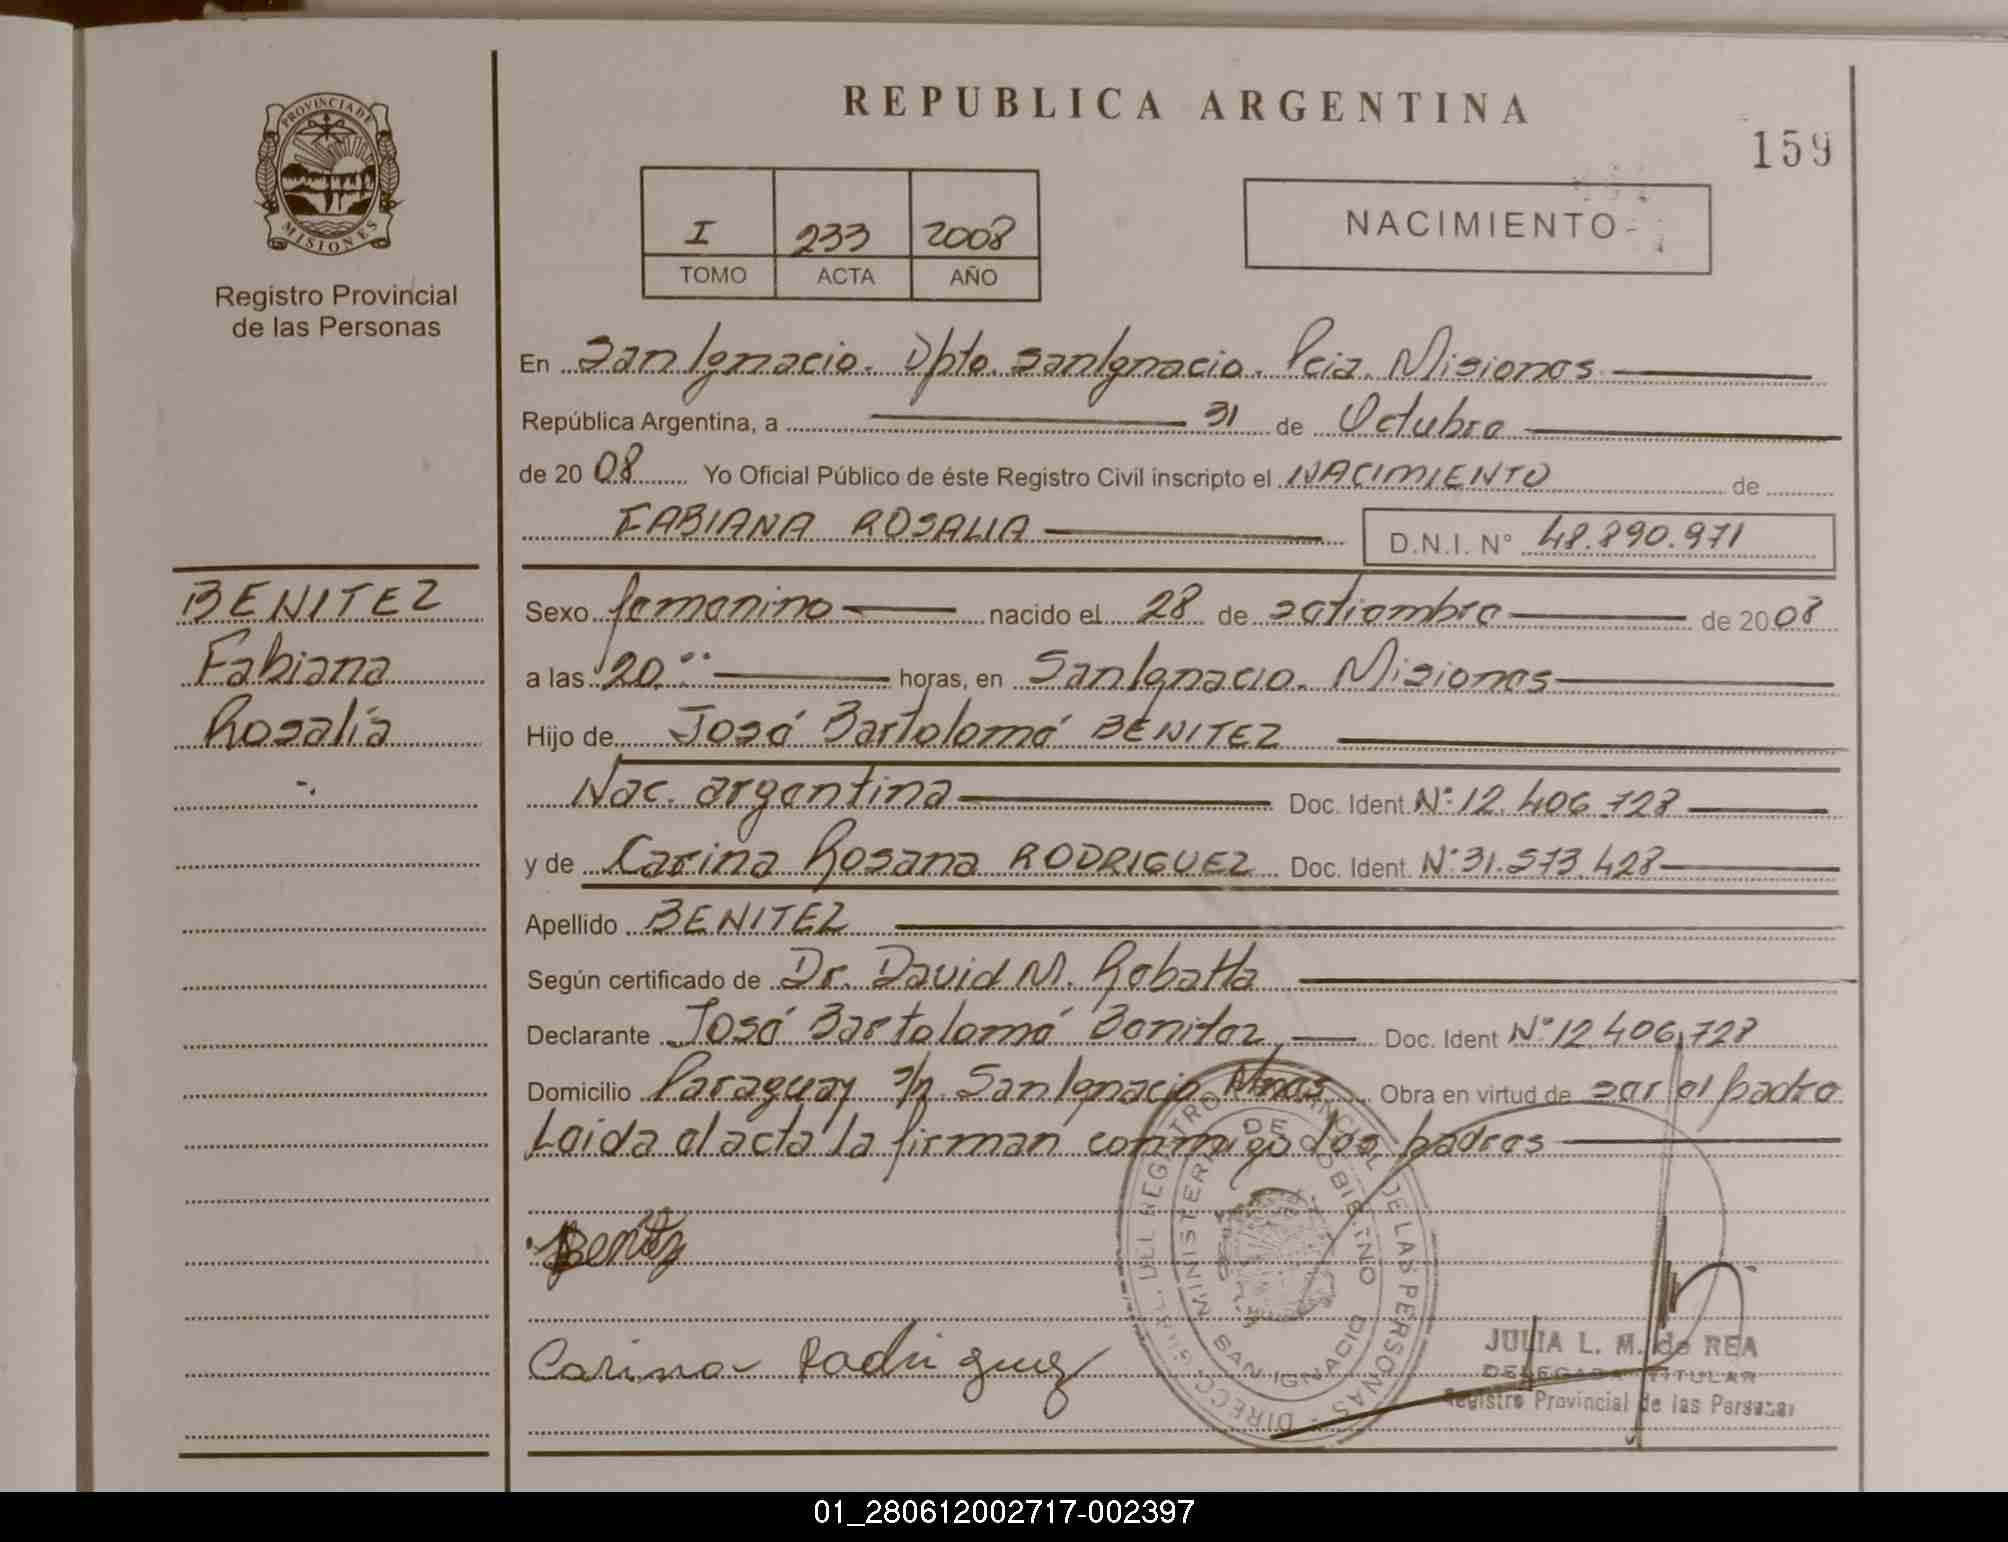 REPUBLICA ARGENTINA
159
PROVINCIA DE
MISIONES
Registro Provincial
de las Personas
I 233 2008
TOMO ACTA AÑO
NACIMIENTO
En San Ignacio. Dpto. San Ignacio. Pcia. Misiones
República Argentina, a 31 de Octubre
de 20 08 Yo Oficial Público de éste Registro Civil inscripto el NACIMIENTO de
FABIANA ROSALIA D.N.I. N° 48.890.971
BENITEZ
Fabiana
Rosalía
Sexo femenino nacido el 28 de setiembre de 2008
a las 20.·· horas, en San Ignacio. Misiones
Hijo de José Bartolomé BENITEZ
Nac. argentina Doc. Ident. N° 12.406.728
y de Carina Rosana RODRIGUEZ Doc. Ident. N° 31.573.428
Apellido BENITEZ
Según certificado de Dr. David M.
Declarante José Bartolomé Benitez Doc. Ident N° 12.406.728
Domicilio Paraguay s/n. San Ignacio Mnes Obra en virtud de ser el padre
Leida el acta la firman conmigo los padres
Benitez
Carina Rodriguez
MINISTERIO DE GOBIERNO
SAN IGNACIO
DEL REGISTRO PROVINCIAL DE LAS PERSONAS
JULIA L. M. de REA
DELEGADA TITULAR
Registro Provincial de las Personas
01_280612002717-002397